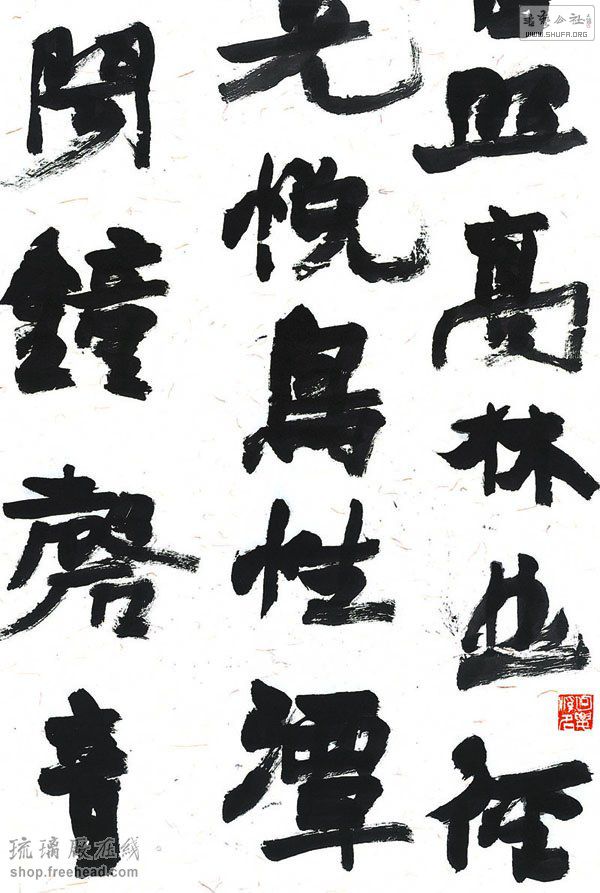 高林曲径
光悦鳥性潭
闻鐘磬音
WWW.SHUFA.ORG
琉璃厰在线
shop.freehead.com